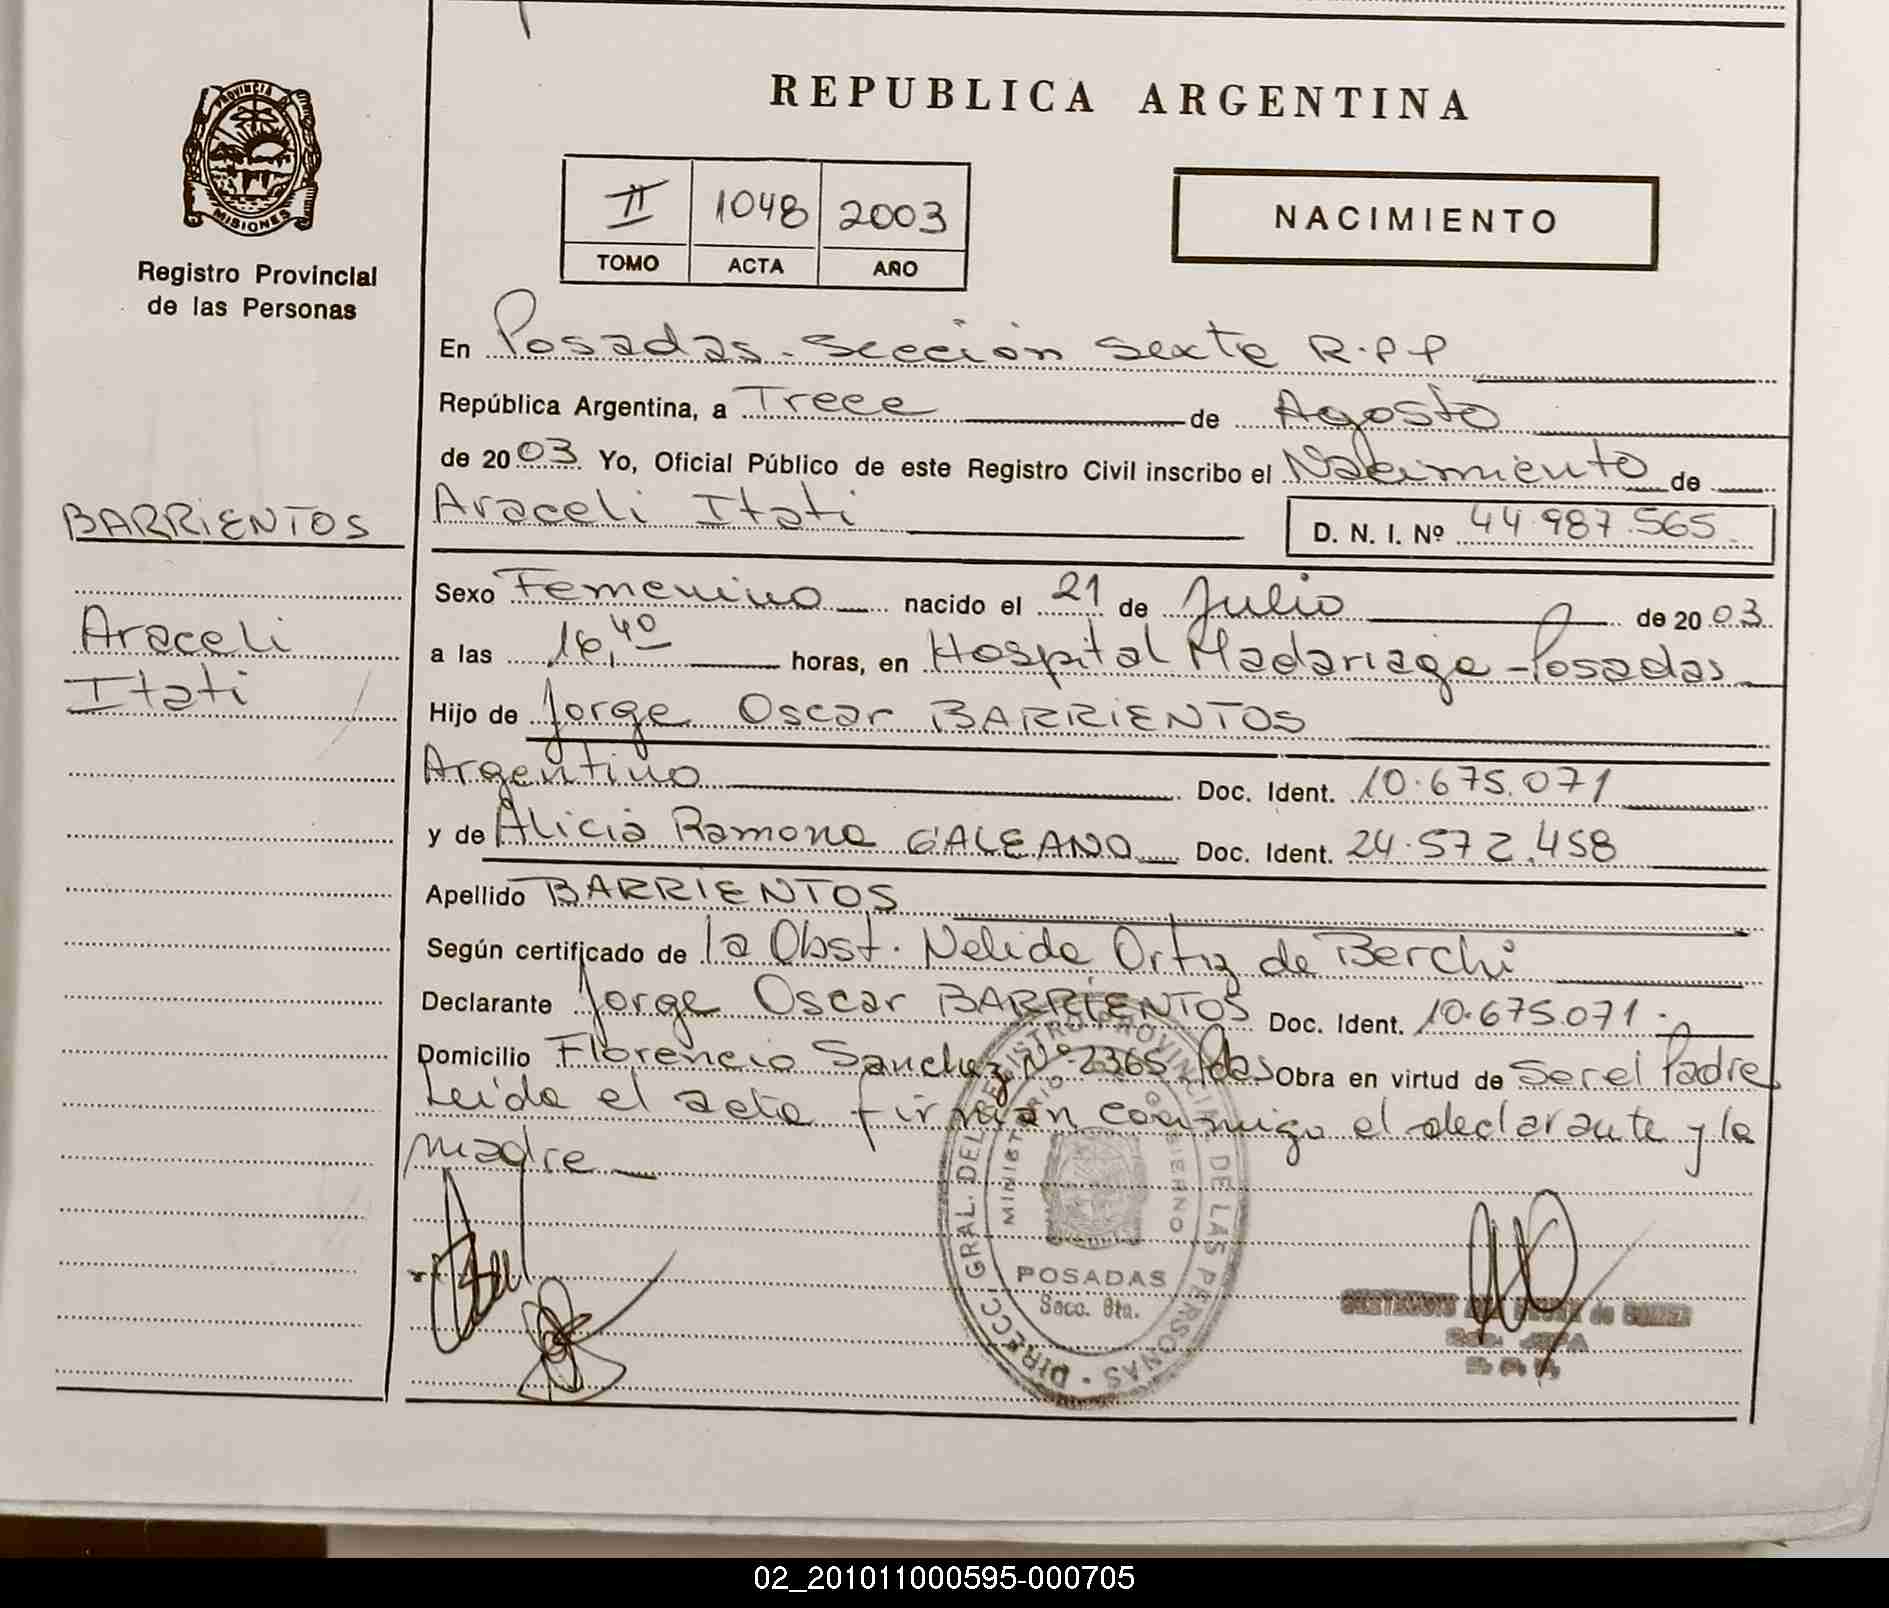 REPUBLICA ARGENTINA
PROVINCIA DE
MISIONES
Registro Provincial
de las Personas
II 1048 2003
TOMO ACTA AÑO
NACIMIENTO
En Posadas - Sección Sexta R.P.P
República Argentina, a Trece de Agosto
de 2003 Yo, Oficial Público de este Registro Civil inscribo el Nacimiento de
BARRIENTOS
Araceli Itati
D. N. I. Nº 44.987.565
Sexo Femenino nacido el 21 de Julio de 2003
Araceli
Itati
a las 16,40 horas, en Hospital Madariaga - Posadas
Hijo de Jorge Oscar BARRIENTOS
Argentino Doc. Ident. 10.675.071
y de Alicia Ramona GALEANO Doc. Ident. 24.572.458
Apellido BARRIENTOS
Según certificado de la Obst. Nelida Ortiz de Berchi
Declarante Jorge Oscar BARRIENTOS Doc. Ident. 10.675.071.-
Domicilio Florencio Sanchez Nº 2365 Pdas Obra en virtud de Ser el Padre
Leida el acta firman conmigo el declarante y la
madre
DIRECC. GRAL. DEL REGISTRO PROVINCIAL DE LAS PERSONAS
MINISTERIO GOBIERNO
POSADAS
Secc. 6ta.
02_201011000595-000705